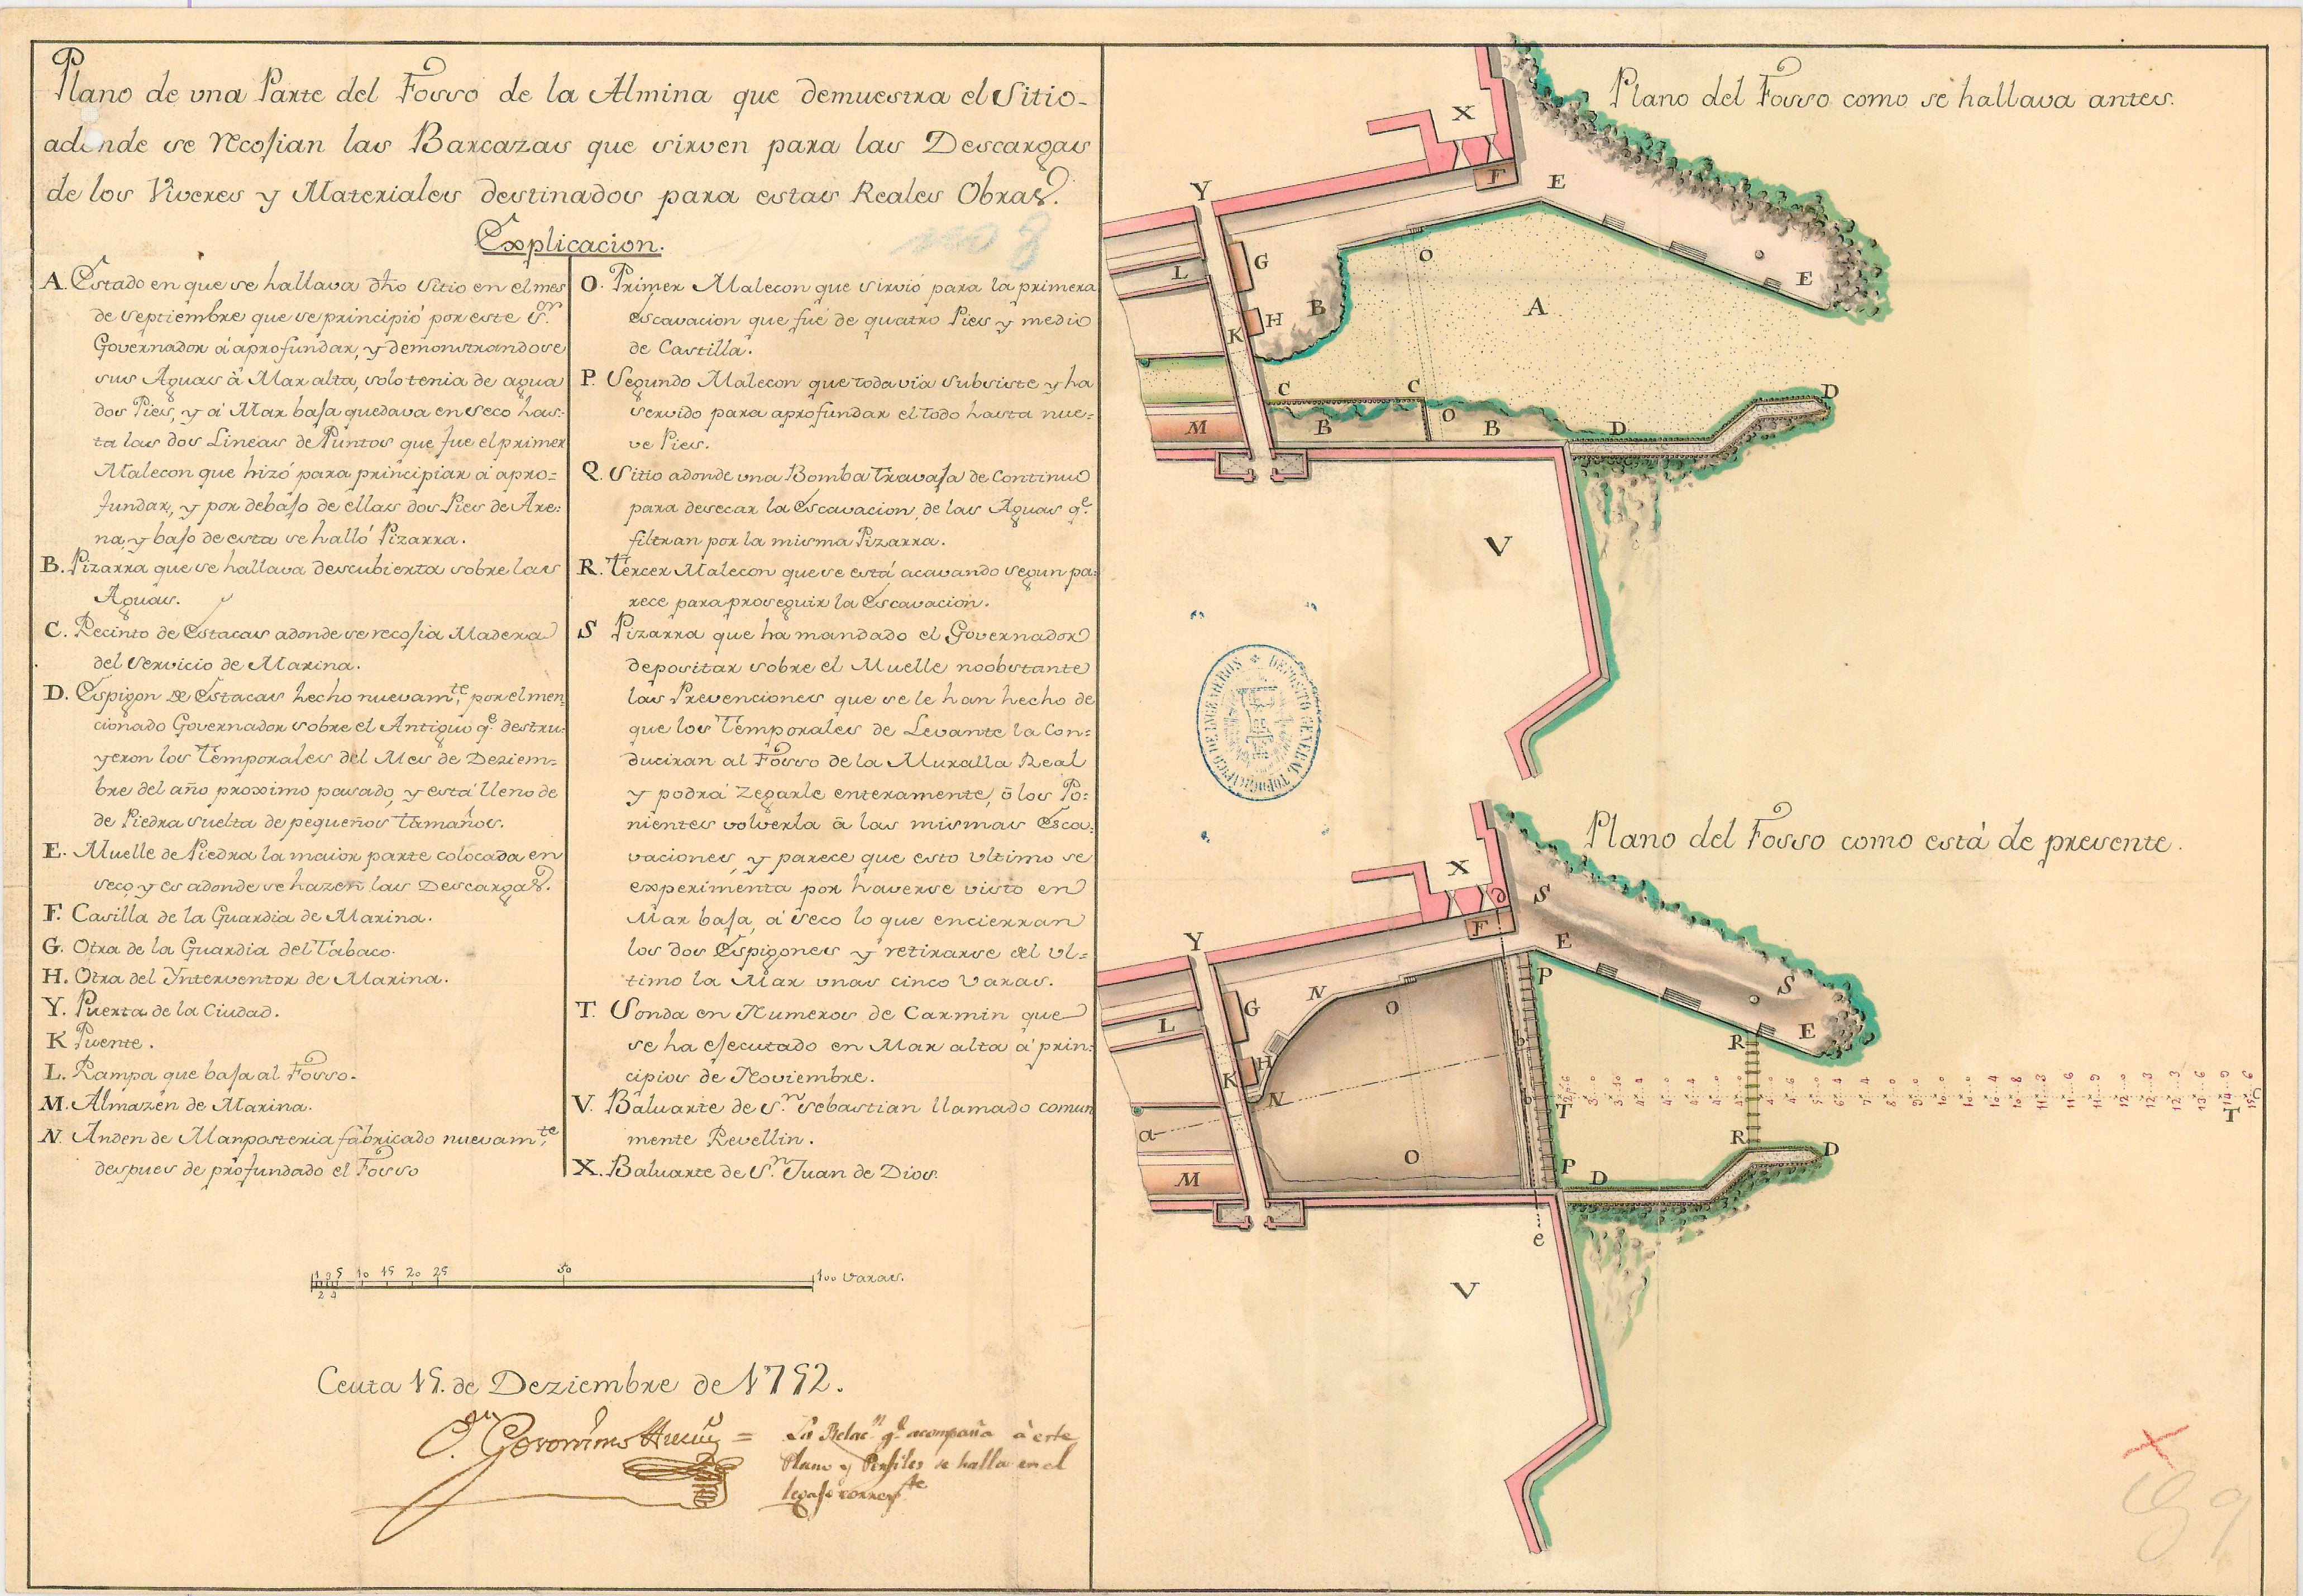 Plano de una Parte del Fosso de la Almina que demuestra el Sitio-
adonde se recojian las Barcazas que sirven para las Descargas
de los Viveres y Materiales destinados para estas Reales Obras.
Explicacion.
A. Estado en que se hallava dho Sitio en el mes
de Septiembre que se principió por este Sor.
Governador á aprofundar, y demonstrandose
sus Aguas à Mar alta, solo tenia de agua
dos Pies, y á Mar baja quedava en Seco has-
ta las dos Lineas de Puntos que fue el primer
Malecon que hizó para principiar á apro=
fundar, y por debajo de ellas dos Pies de Are:
na, y bajo de esta se halló Pizarra.
B. Pizarra que se hallava descubierta sobre las
Aguas.
C. Recinto de Estacas adonde se recojia Madera
del Servicio de Marina.
D. Espigon de Estacas hecho nuevamte. por el men:
cionado Governador sobre el Antiguo qe. destru:
yeron los Temporales del Mes de Deziem-
bre del año proximo pasado, y está lleno de
de Piedra suelta de pequeños tamaños.
E. Muelle de Piedra la maior parte colocada en
seco, y es adonde se hazen las Descargas.
F. Casilla de la Guardia de Marina.
G. Otra de la Guardia del Tabaco.
H. Otra del Ynterventor de Marina.
Y. Puerta de la Ciudad.
K Puente.
L. Rampa que baja al Fosso.
M. Almazén de Marina.
N. Anden de Manposteria fabricado nuevamte.
despues de profundado el Fosso
O. Primer Malecon que sirvió para la primera
escavacion que fué de quatro Pies y medio
de Castilla.
P. Segundo Malecon que todavia subsiste y ha
servido para aprofundar el todo hasta nue=
ve Pies.
Q. Sitio adonde una Bomba travaja de Continuo
para desecar la Escavacion, de las Aguas qe.
filtran por la misma Pizarra.
R. Tercer Malecon que se está acavando segun pa:
rece para proseguir la Escavacion.
S Pizarra que ha mandado el Governador
depositar sobre el Muelle noobstante
las Prevenciones que se le han hecho de
que los Temporales de Levante la Con:
duciran al Fosso de la Muralla Real
y podrá Zegarle enteramente, ō los Po:
nientes volverla â las mismas Esca:
vaciones, y parece que esto ultimo se
experimenta por haverse visto en
Mar baja, á Seco lo que encierran
los dos Espigones y retirarse del Ul=
timo la Mar unas cinco Varas.
T. Sonda en Numeros de Carmin que
se ha ejecutado en Mar alta á prin:
cipios de Noviembre.
V. Baluarte de Sn. Sebastian llamado comun
mente Revellin.
X. Baluarte de Sn. Juan de Dios.
1 3 5 10 15 20 25 50 100 Varas.
2 4
Ceuta 15. de Deziembre de 1752.
La Relacn. qe. acompaña à este
Plano y Perfiles se halla en el
legajo correspte
Plano del Fosso como se hallava antes.
X
Y
F
E
G
L
O
E
B
A
H
K
C
C
D
O
M
B
B
D
V
DEPOSITO GENERAL TOPOGRAFICO DE INGENIEROS
Plano del Fosso como está de presente.
X
d
S
F
Y
E
P
S
G
N
O
L
E
R
b
H
K
N
b
T
T
C
a
R
D
O
P
D
M
e
V
89